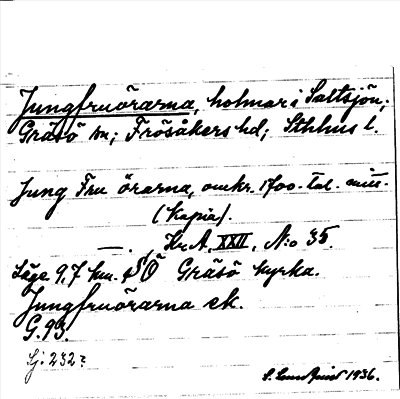 Jungfruörarna, holmar i Saltsjön;
Gräsö sn; Frösåkers hd; Sthlms l.
Jung Fru örarna, omkr. 1700-tal. mus.
(Kopia).
—. Kr. A. XXII, N:o 35.
Läge 9,7 km. SÖ Gräsö kyrka.
Jungfruörarna ek.
G. 93.
Sj: 232?
1936.